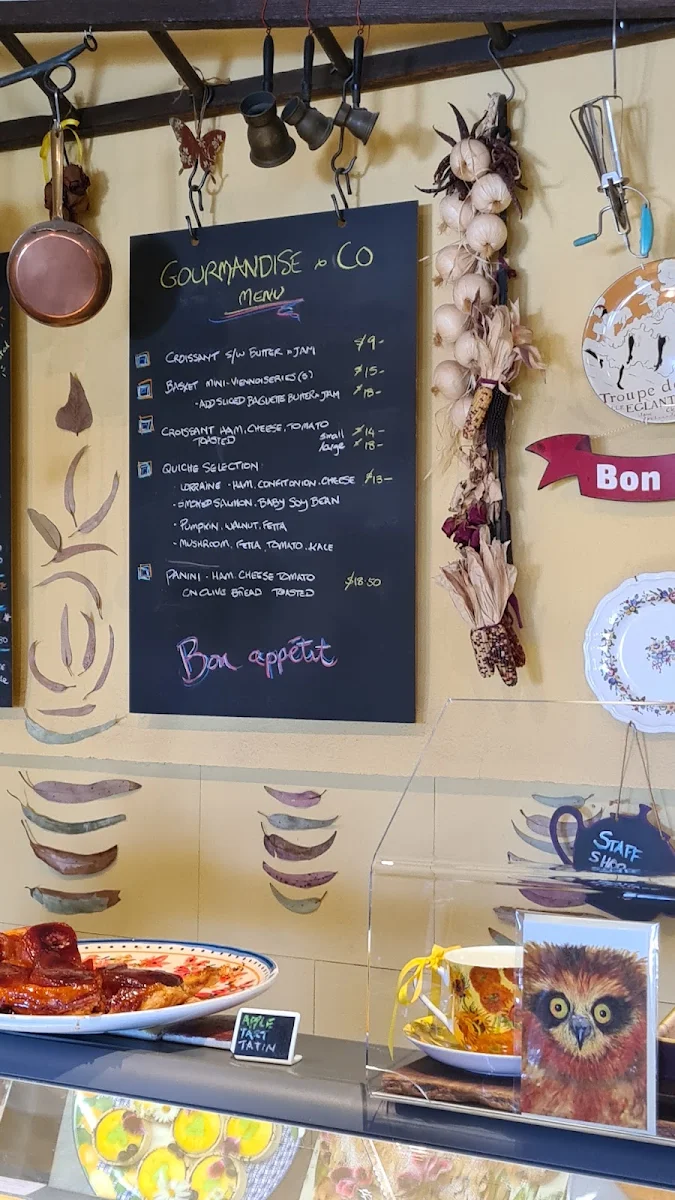 GOURMANDISE & CO
MENU
CROISSANT S/W BUTTER & JAM $9-
BASKET MINI-VIENNOISERIES $15-
- ADD SLICED BAGUETTE BUTTER & JAM $18-
CROISSANT HAM, CHEESE, TOMATO small $14-
TOASTED large $18-
QUICHE SELECTION
- LORRAINE - HAM, CHEESE $13-
- SMOKED SALMON, BABY SOY BEAN
- PUMPKIN, WALNUT, FETTA
- MUSHROOM, FETTA, TOMATO, KALE
PANINI - HAM, CHEESE TOMATO $18.50
ON OLIVE BREAD TOASTED
Bon appétit
Troupe de
EGLANT
Bon
STAFF
APPLE
TART
TATIN